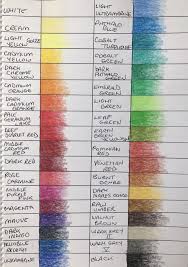 WHITE
CREAM
LIGHT YELLOW GLAZE
CADMIUM YELLOW
DARK CHROME YELLOW
CADMIUM ORANGE
DARK CADMIUM ORANGE
PALE GERANIUM LAKE
DEEP SCARLET RED
MEDIUM
DARK RED
PINK CARMINE
MIDDLE PURPLE PINK
MAGENTA
MAUVE
DARK INDIGO
LIGHT ULTRAMARINE
PHTHALO BLUE
COBALT TURQUOISE
COBALT GREEN
DARK PHTHALO GREEN
EMERALD GREEN
LIGHT GREEN
LEAF GREEN
EARTH GREEN YELLOWISH
POMPEIAN RED
VENETIAN RED
BURNT OCHRE
RAW UMBER
WALNUT BROWN
WARM GREY II
WARM GREY V
BLACK